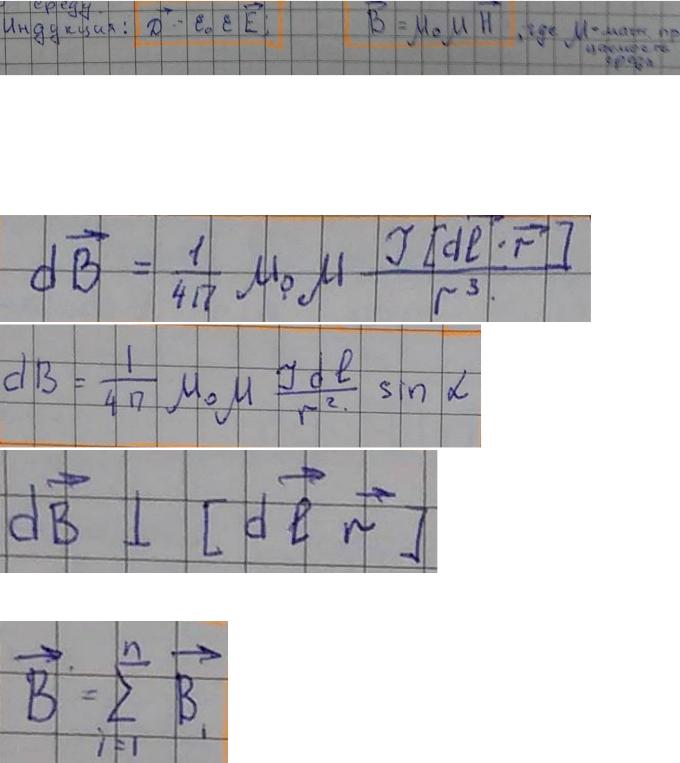 среду.
Индукция: D⃗ = ε₀ ε E⃗; B⃗ = μ₀ μ H⃗, где μ - магн. пр
среды
dB⃗ = 1/4π μ₀ μ I [dl⃗ · r⃗] / r³.
dB = 1/4π μ₀ μ I dl / r². sin α
dB⃗ ⊥ [dl⃗ r⃗]
n
B⃗ = Σ B⃗ᵢ
i=1